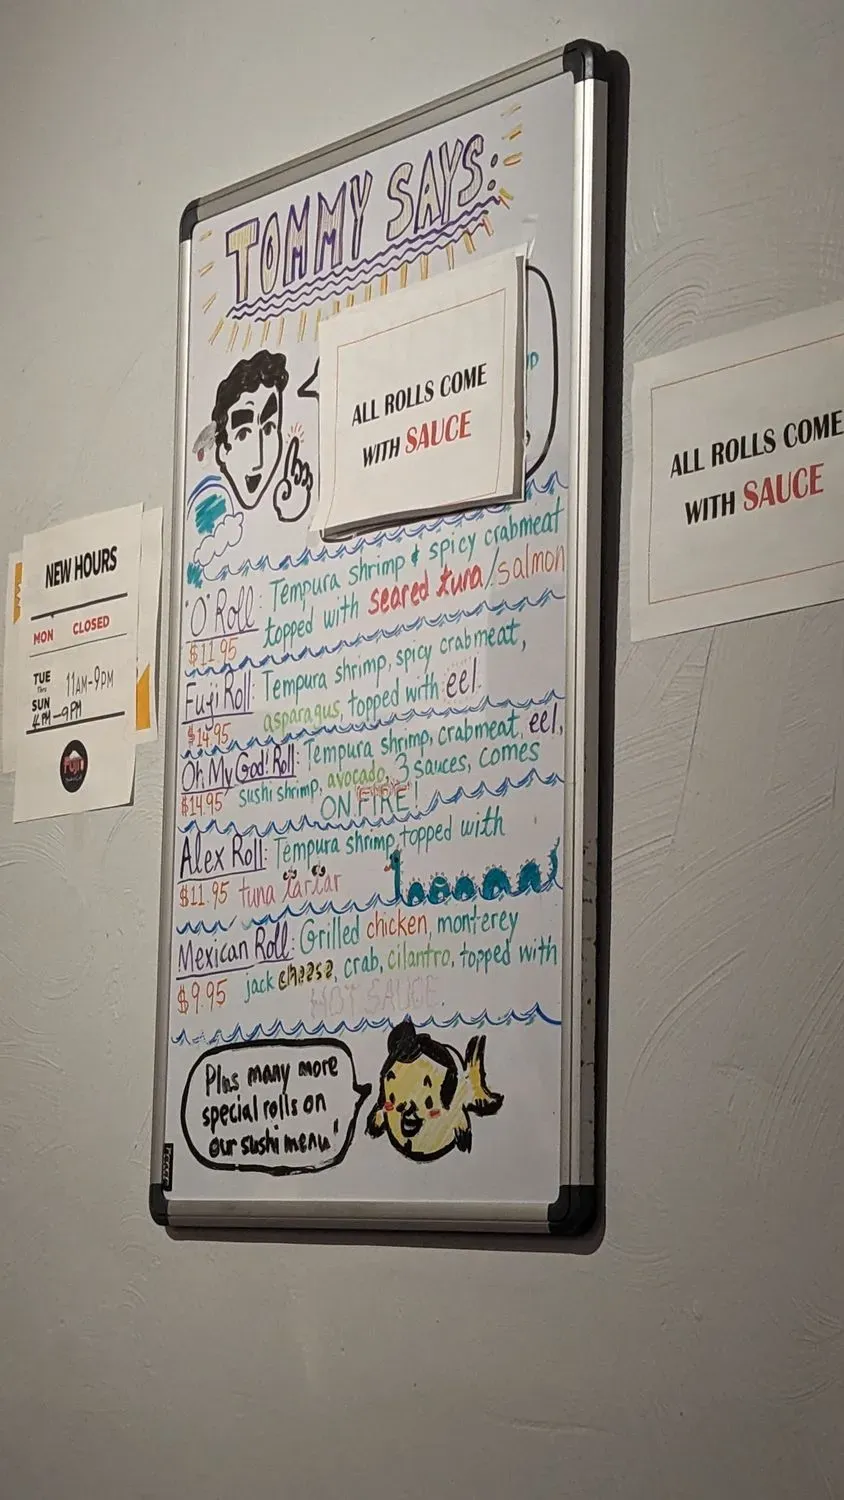 TOMMY SAYS:
ALL ROLLS COME
WITH SAUCE
"O" Roll: Tempura shrimp & spicy crabmeat
topped with seared tuna/salmon
$11.95
Fuji Roll: Tempura shrimp, spicy crabmeat,
asparagus, topped with eel
$14.95
Oh My God! Roll: Tempura shrimp, crabmeat, eel,
$14.95 sushi shrimp, avocado, 3 sauces, comes
ON FIRE!
Alex Roll: Tempura shrimp, topped with
$11.95 tuna tartar
Mexican Roll: Grilled chicken, monterey
$9.95 jack cheese, crab, cilantro, topped with
HOT SAUCE.
Plus many more
special rolls on
our sushi menu"
NEW HOURS
MON CLOSED
TUE
Thru
SUN
11AM-9PM
4PM-9PM
Fuji
ALL ROLLS COME
WITH SAUCE